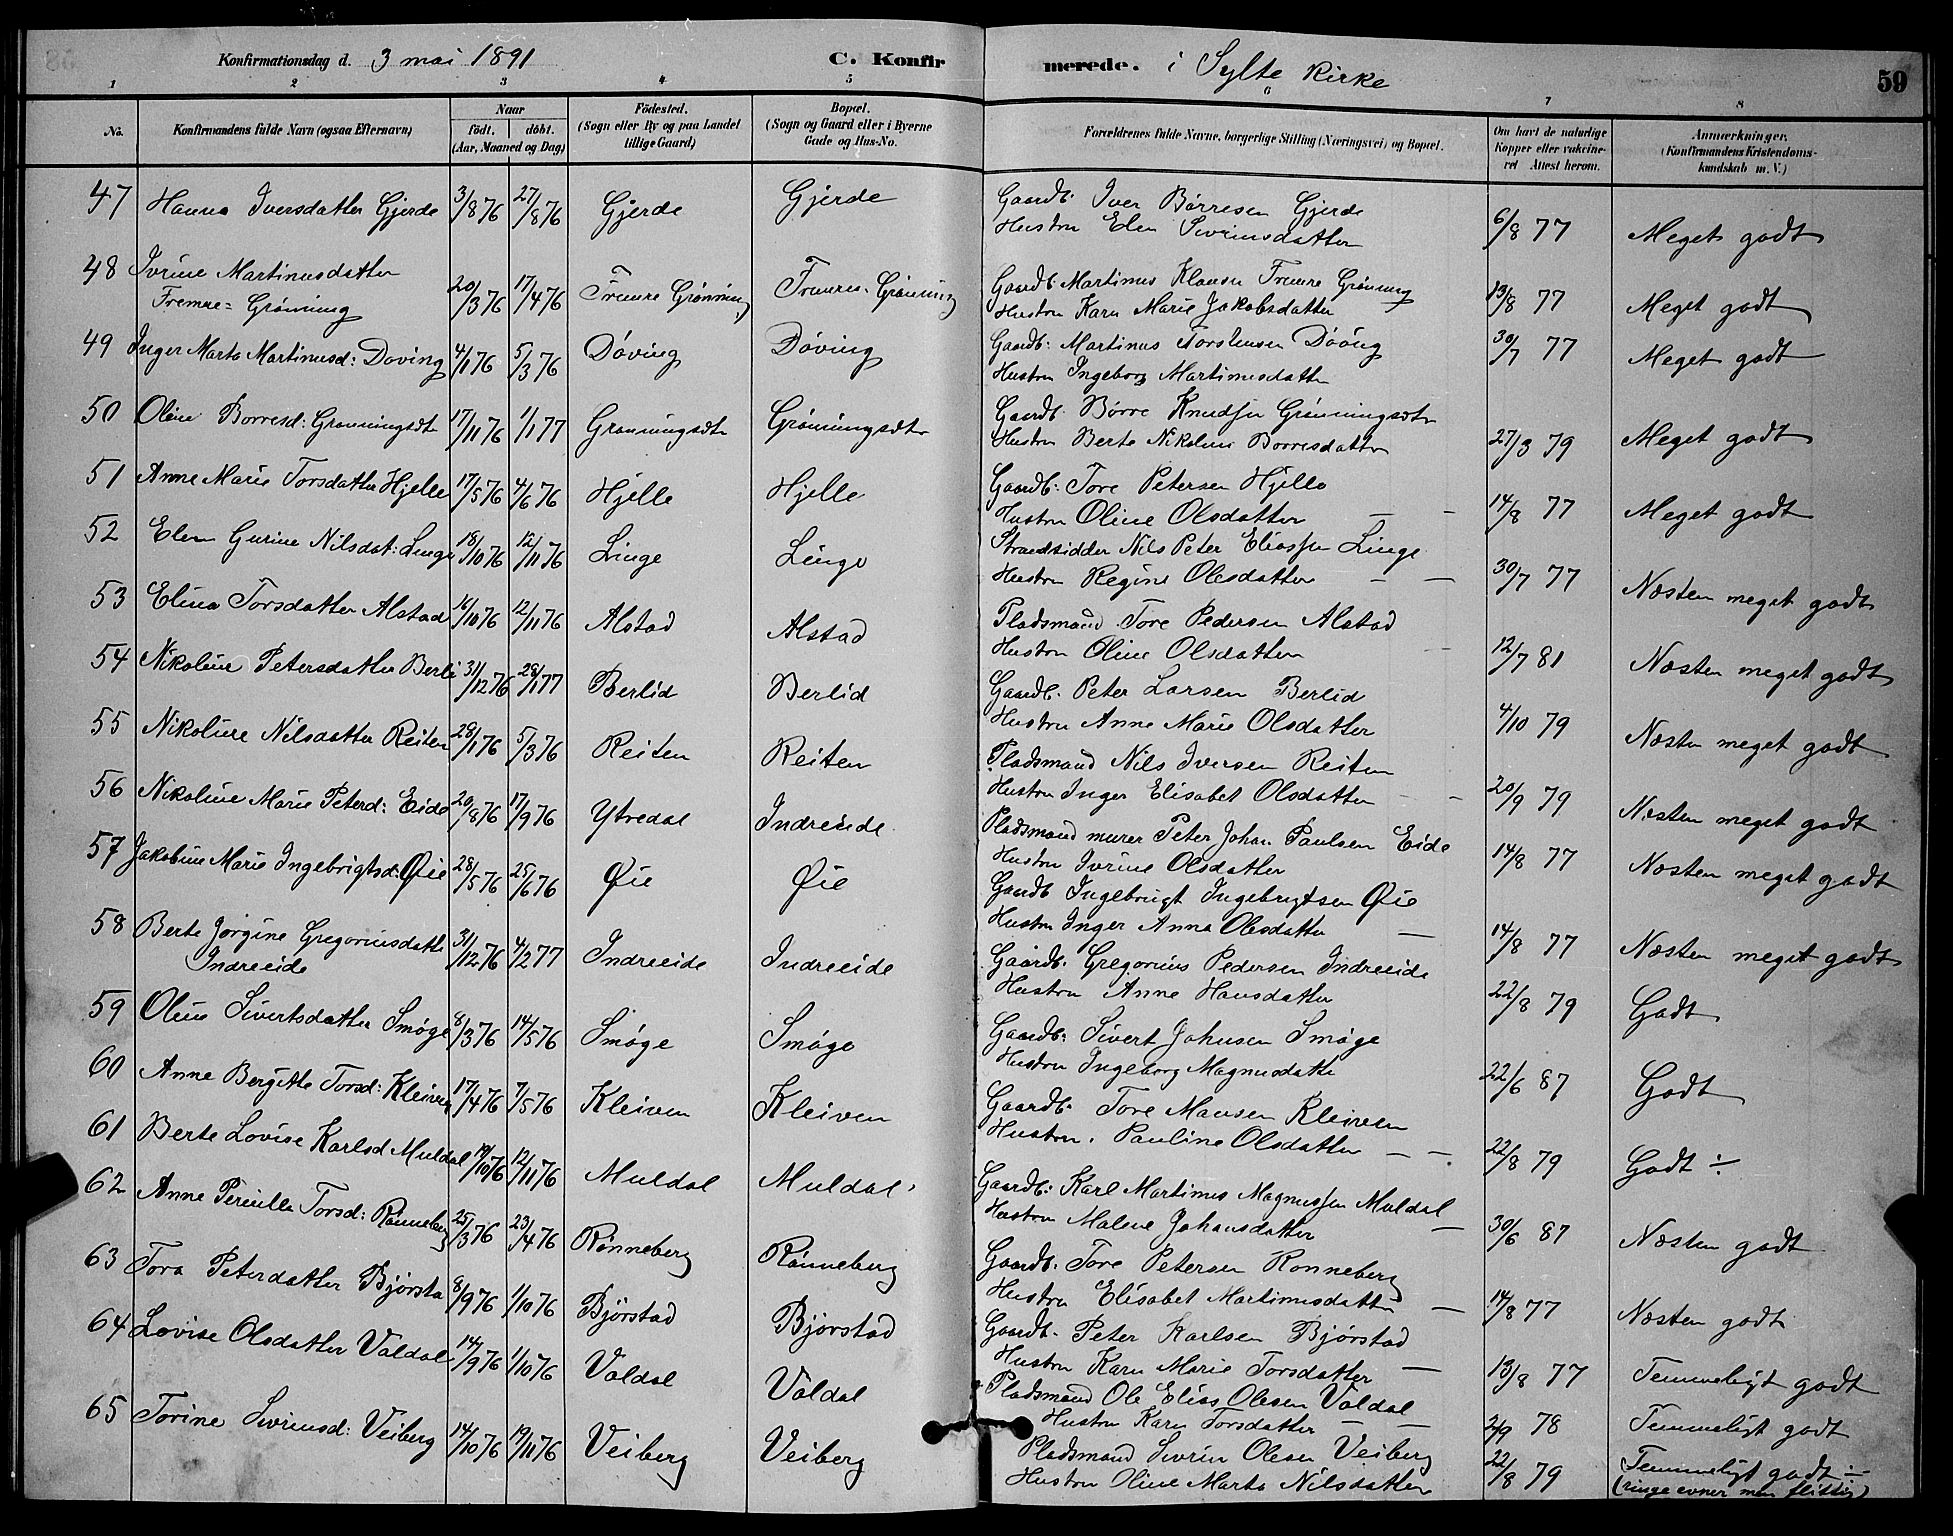 Konfirmationsdag d. 3 mai 1891 C. Konfirmerede. i Sylte Kirke 59
1 2 3 4 5 6 7 8
No. Konfirmandens fulde Navn (ogsaa Efternavn) Naar födt. döbt. (Aar, Maaned og Dag) Födested. (Sogn eller By og paa Landet tillige Gaard) Bopæl. (Sogn og Gaard eller i Byerne Gade og Hus-No. Forældrenes fulde Navne, borgerlige Stilling (Næringsvei) og Bopæl. Om havt de naturlige Kopper eller vakcineret Attest herom. Anmærkninger. (Konfirmandens Kristendomskundskab m. V.)
47 Hanna Iversdatter Gjerde 3/8 76 27/8 76 Gjerde Gjerde Gaardb. Iver Börresen Gjerde
Hustru Elen Sivrinsdatter 6/8 77 Meget godt
48 Ivrine Martinusdatter
Fremre= Grönning 20/3 76 17/4 76 Fremre Grönning Fremre Grönning Gaardb. Martinus Klausen Fremre Grönning
Hustru Karn Marie Jakobsdatter 13/8 77 Meget godt
49 Inger Marta Martinusd: Döving 4/1 76 5/3 76 Döving Döving Gaardb: Martinus Torstensen Döving
Hustru Ingeborg Martinusdatter 30/7 77 Meget godt
50 Oline Borresd: Grönningsæter 17/11 76 1/1 77 Grönningsæter Grönningsæter Gaardb. Börre Knudsen Grönningsæter
Hustru Berte Nikoline Borresdatter 27/3 79 Meget godt
51 Anne Marie Torsdatter Hjelle 17/5 76 4/6 76 Hjelle Hjelle Gaardb: Tore Petersen Hjelle
Hustru Oline Olsdatter — - 14/8 77 Meget godt
52 Elen Gurine Nilsdat: Linge 18/10 76 12/11 76 Linge Linge Strandsidder Nils Peter Eliassen Linge
Hustru Regine Olesdatter — — 30/7 77 Næsten meget godt
53 Elina Torsdatter Alstad 16/10 76 12/11 76 Alstad Alstad Pladsmand Tore Pedersen Alstad
Hustru Oline Olsdatter — 12/7 81 Næsten meget godt
54 Nikoline Petersdatter Berli 31/12 76 28/1 77 Berlid Berlid Gaardb. Peter Larsen Berlid
Hustru Anne Marie Olsdatter 4/10 79 Næsten meget godt
55 Nikoline Nilsdatter Reiten 28/1 76 5/3 76 Reiten Reiten Pladsmand Nils Iversen Reiten
Hustru Inger Elisabet Olsdatter - - 20/9 79 Næsten meget godt
56 Nikoline Marie Peterd: Eide 20/8 76 17/9 76 Ytredal Indreeide Pladsmand murer Peter Johan Paulsen Eide
Hustru Ivrine Olsdatter 14/8 77 Næsten meget godt
57 Jakobine Marie Ingebrigtsd: Øie 28/5 76 25/6 76 Øie Øie Gaardb Ingebrigt Ingebrigtsen Øie
Hustru Inger Anna Olesdatter — 14/8 77 Næsten meget godt
58 Berte Jorgine Gregoriusdatter
Indreeide 31/12 76 4/2 77 Indreeide Indreeide Gaardb. Gregorius Pedersen Indreeide
Hustru Anne Hansdatter 22/8 79 Godt
59 Oline Sivertsdatter Smøge 8/3 76 14/5 76 Smøge Smøge Gaardb: Sivert Johnsen Smøge
Hustru Ingeborg Magnusdatter 22/6 87 Godt
60 Anne Bergitte Torsd: Kleiven 17/4 76 7/5 76 Kleiven Kleiven Gaardb. Tore Mansen Kleiven
Hustru. Pauline Olsdatter — — 22/8 79 Godt ÷
61 Berte Lovise Karlsd Muldal 19/10 76 12/11 76 Muldal Muldal Gaardb: Karl Martinus Magnussen Muldal
Hustru Malene Johansdatter — 30/6 87 Næsten godt
62 Anne Pernille Torsd: Rönneberg 25/3 76 23/4 76 Rönneberg Rönneberg Gaardb. Tore Petersen Rönneberg
Hustru Elisabet Martinusdatter — 14/8 77 Næsten godt
63 Tora Peterdatter Björsta 8/9 76 1/10 76 Björstad Björstad Gaardb. Peter Karlsen Björstad
Hustru Karn Marie Torsdatter — 13/8 77 Temmeligt godt
64 Lovise Olsdatter Valdal 14/9 76 1/10 76 Valdal Valdal Pladsmand Ole Elias Olesen Valdal
Hustru Karn Torsdatter — — 2/9 78 Temmeligt godt
65 Torine Sivrinsd: Veiberg 14/10 76 19/11 76 Veiberg Veiberg Pladsmand Sivrin Olesen Veiberg
Hustru Oline Marta Nilsdatter 22/8 79 Temmeligt godt ÷
(ringe evner men flittig)